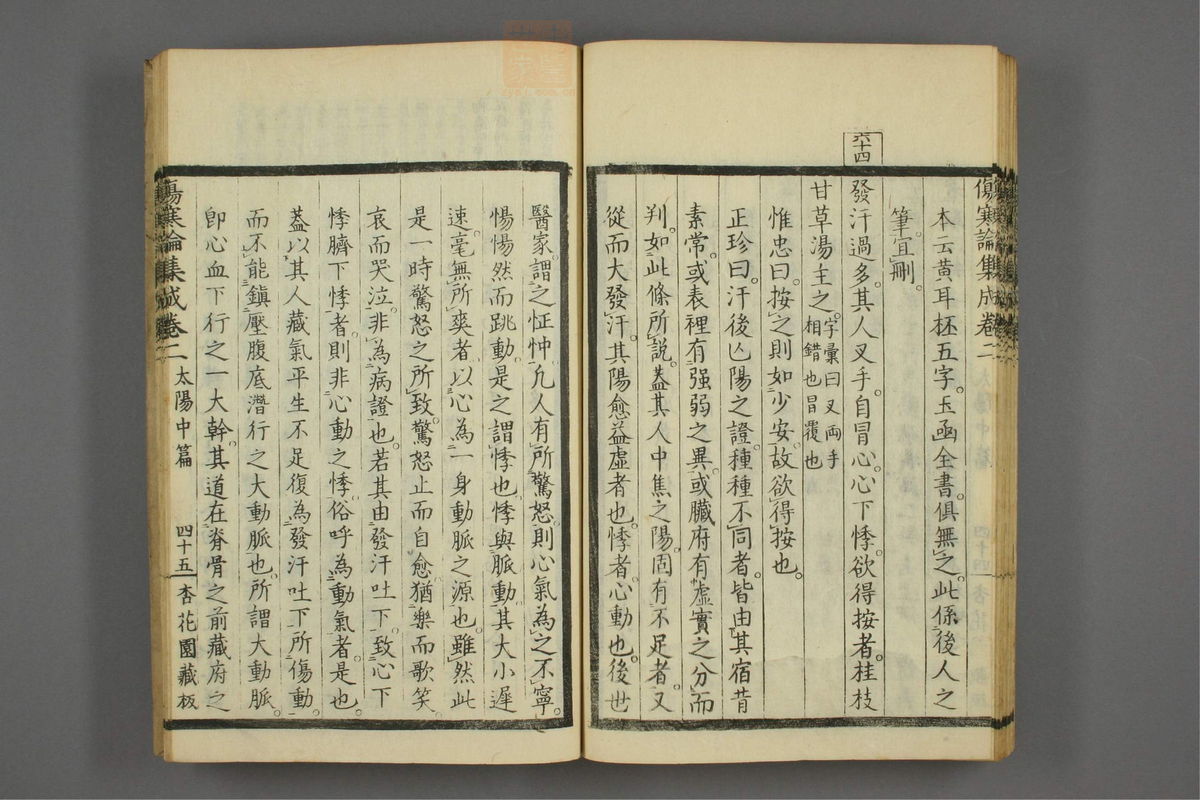 傷寒論集成卷二
本云黃耳柸五字。玉函全書。俱無之。此係後人之
筆。宜刪。
六十四
發汗過多。其人叉手。自冒心。心下悸。欲得按者。桂枝
甘草湯主之。字彙曰叉両手相錯也冒覆也
惟忠曰。按之則如少安。故欲得按也。
正珍曰。汗後亾陽之證。種種不同者。皆由其宿昔
素常。或表裡有强弱之異。或臟府有虛實之分。而
判。如此條所說。蓋其人中焦之陽。固有不足者。又
從而大發汗。其陽愈益虛者也。悸者。心動也。後世
醫家謂之怔忡。凡人有所驚怒。則心氣為之不寧。
惕惕然而跳動。是之謂悸也。悸與脈動。其大小遲
速。毫無所爽者。以心為一身動脈之源也。雖然此
是一時驚怒之所致。驚怒止而自愈。猶樂而歌笑。
哀而哭泣。非為病證也。若其由發汗吐下。致心下
悸臍下悸者。則非心動之悸。俗呼為動氣者是也。
蓋以其人藏氣平生不足。復為發汗吐下所傷動。
而不能鎮壓腹底潛行之大動脈也。所謂大動脈。
即心血下行之一大幹。其道在脊骨之前藏府之
傷寒論集成卷二 太陽中篇 四十五 杏花園藏板